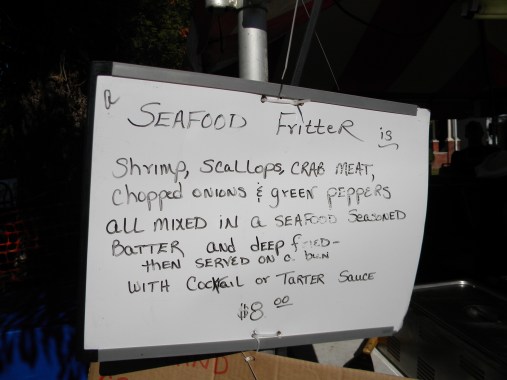 a SEAFOOD Fritter is
Shrimp, Scallops, CRAB MEAT,
Chopped ONIONS & GREEN PEPPERS
all MIXED IN a SEAFOOD Seasoned
BATTER and deep fried-
then SERVED ON a bun
WITH Cocktail or TARTER Sauce
$8.00
AND